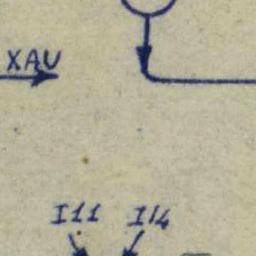 XAU
I11 I14